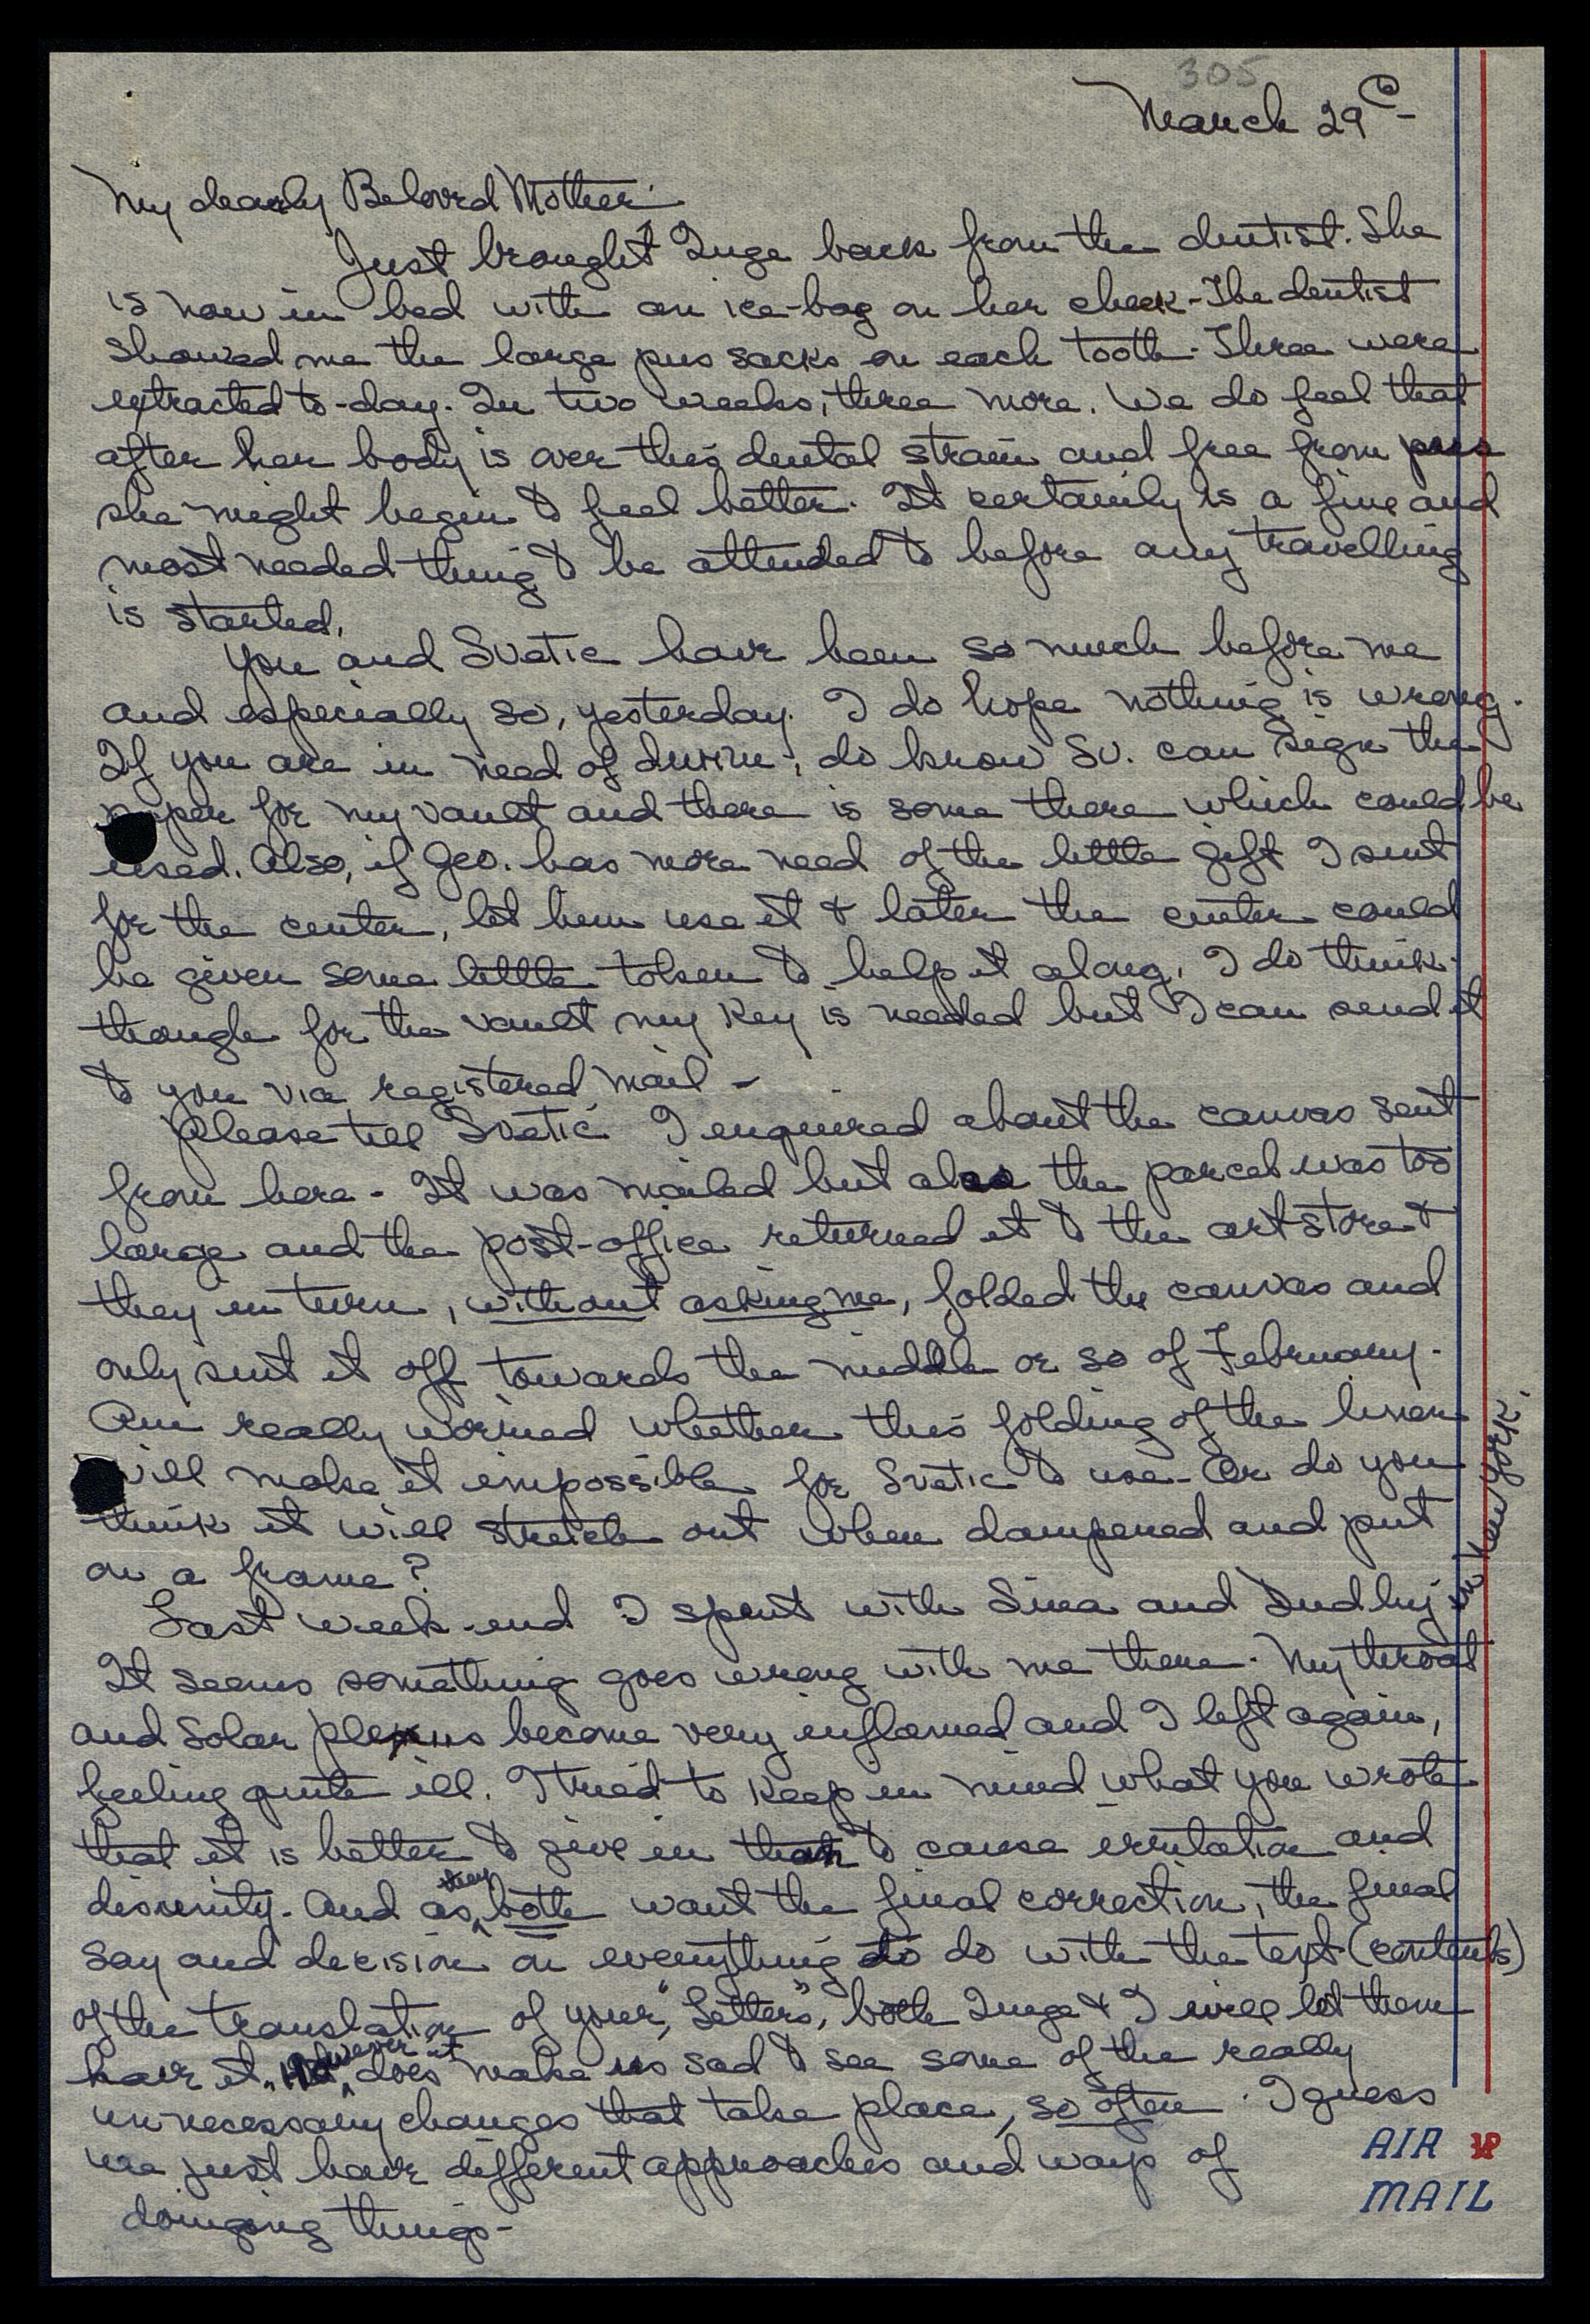 305
March 29th -
My dearly Beloved Mother:
Just brought Inge back from the dentist. She
is now in bed with an ice-bag on her cheek - The dentist
showed me the large pus sacks on each tooth. Three were
extracted to-day. In two weeks, three more. We do feel that
after her body is over this dental strain and free from pus
she might begin to feel better. It certainly is a fine and
most needed thing to be attended to before any travelling
is started.
You and Svetic have been so much before me
and especially so, yesterday. I do hope nothing is wrong.
If you are in need of , do know Sv. can sign the
paper for my vault and there is some there which could be
used. Also, if Geo. has more need of the little gift I sent
for the center, let him use it & later the center could
be given some little token to help it along. I do think
though for the vault my key is needed but I can send it
to you via registered mail -
Please tell Svetic I enquired about the canvas sent
from here - It was mailed but alas the parcel was too
large and the post-office returned it to the art store &
they in turn, without asking me, folded the canvas and
only sent it off towards the middle or so of February.
Am really worried whether this folding of the linen
will make it impossible for Svetic to use - Or do you
think it will stretch out when dampened and put
on a frame?
Last week-end I spent with Sina and Dudley in New York.
It seems something goes wrong with me there. My throat
and Solar plexus become very inflamed and I left again,
feeling quite ill. I tried to keep in mind what you wrote
that it is better to give in than to cause irritation and
disunity. And as they both want the final correction, the final
say and decision on everything to do with the text (contents)
of the translation of your "Letters", both Inge & I will let them
have it. However it does make us sad to see some of the really
unnecessary changes that take place, so often. I guess
we just have different approaches and ways of
doing things -
AIR
MAIL